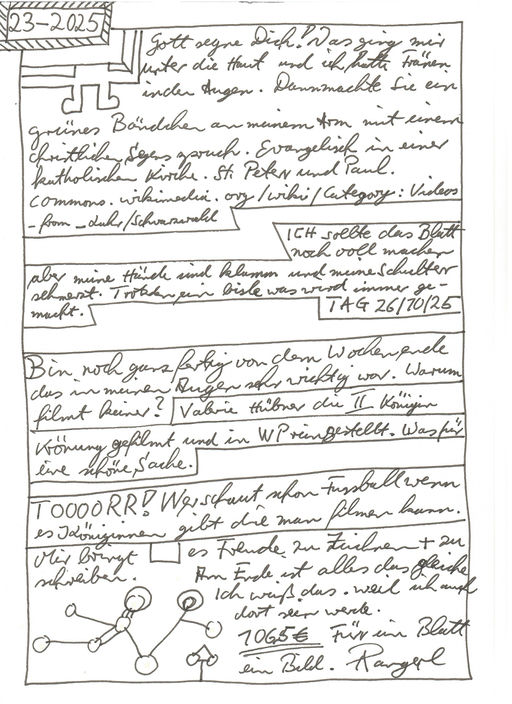 23-2025
Gott segne Dich! Das ging mir
unter die Haut und ich hatte Tränen
in den Augen. Dann machte Sie ein
grünes Bändchen an meinem Arm mit einem
christlichen Segensspruch. Evangelisch in einer
katholischen Kirche. St. Peter und Paul.
commons.wikimedia.org/wiki/Category:Videos
_from_Lahr/Schwarzwald
ICH sollte das Blatt
noch voll machen
aber meine Hände sind klamm und meine Schulter
schmerzt. Trotzdem ein bisle was wird immer ge-
macht.
TAG 26/10/25
Bin noch ganz fertig von dem Wochenende
das in meinen Augen sehr wichtig war. Warum
filmt keiner? Valerie Hübner die II Königin
Krönung gefilmt und in WP reingestellt. Was für
eine schöne Sache.
TOOOORR! Wer schaut schon Fussball wenn
es Königinnen gibt die man filmen kann.
Mir bringt es Freude zu Zeichnen + zu
schreiben.
Am Ende ist alles das gleiche
Ich weiß das. weil ich auch
dort sein werde.
1065€ Für ein Blatt
ein Bild. Rangerl